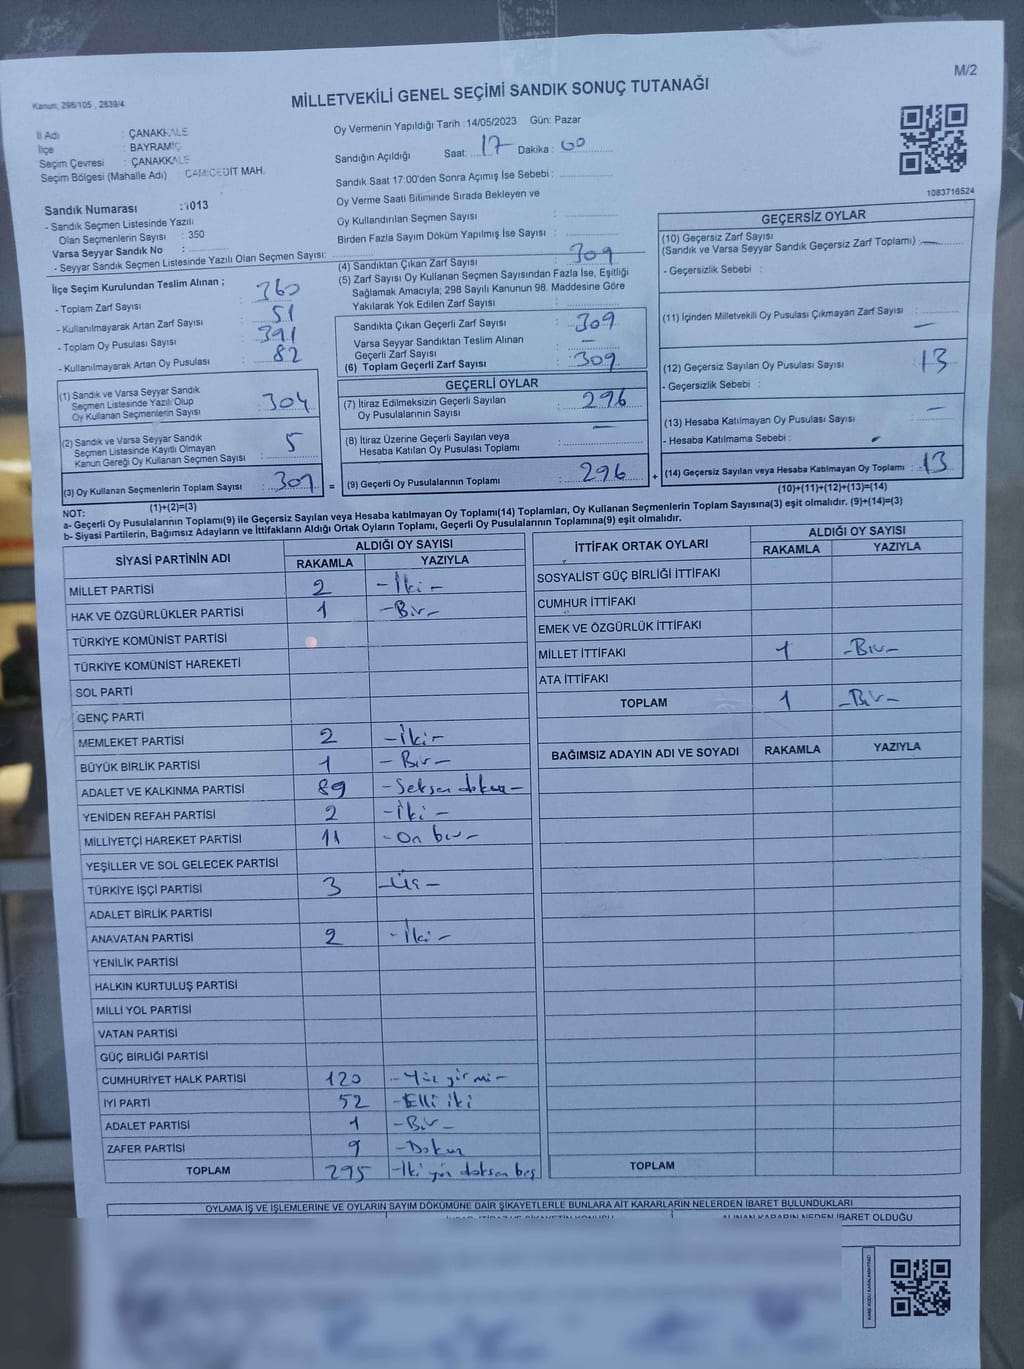 M/2
Kanun; 298/105 , 2839/4
MİLLETVEKİLİ GENEL SEÇİMİ SANDIK SONUÇ TUTANAĞI
İl Adı : ÇANAKKALE
İlçe : BAYRAMİÇ
Seçim Çevresi : ÇANAKKALE
Seçim Bölgesi (Mahalle Adı) CAMİCEDİT MAH.
Sandık Numarası : 1013
- Sandık Seçmen Listesinde Yazılı
Olan Seçmenlerin Sayısı : 350
Varsa Seyyar Sandık No :
- Seyyar Sandık Seçmen Listesinde Yazılı Olan Seçmen Sayısı:
İlçe Seçim Kurulundan Teslim Alınan ;
- Toplam Zarf Sayısı : 360
- Kullanılmayarak Artan Zarf Sayısı : 51
- Toplam Oy Pusulası Sayısı : 391
- Kullanılmayarak Artan Oy Pusulası : 82
(1) Sandık ve Varsa Seyyar Sandık
Seçmen Listesinde Yazılı Olup
Oy Kullanan Seçmenlerin Sayısı : 304
(2) Sandık ve Varsa Seyyar Sandık
Seçmen Listesinde Kayıtlı Olmayan
Kanun Gereği Oy Kullanan Seçmen Sayısı : 5
(3) Oy Kullanan Seçmenlerin Toplam Sayısı : 309 =
(1)+(2)=(3)
Oy Vermenin Yapıldığı Tarih : 14/05/2023 Gün: Pazar
Sandığın Açıldığı Saat: 17 Dakika : 00
Sandık Saat 17:00'den Sonra Açımış İse Sebebi :
Oy Verme Saati Bitiminde Sırada Bekleyen ve
Oy Kullandırılan Seçmen Sayısı :
Birden Fazla Sayım Döküm Yapılmış İse Sayısı :
(4) Sandıktan Çıkan Zarf Sayısı : 309
(5) Zarf Sayısı Oy Kullanan Seçmen Sayısından Fazla İse, Eşitliği
Sağlamak Amacıyla; 298 Sayılı Kanunun 98. Maddesine Göre
Yakılarak Yok Edilen Zarf Sayısı :
Sandıkta Çıkan Geçerli Zarf Sayısı : 309
Varsa Seyyar Sandıktan Teslim Alınan
Geçerli Zarf Sayısı : —
(6) Toplam Geçerli Zarf Sayısı : 309
GEÇERLİ OYLAR
(7) İtiraz Edilmeksizin Geçerli Sayılan
Oy Pusulalarının Sayısı : 296
(8) İtiraz Üzerine Geçerli Sayılan veya
Hesaba Katılan Oy Pusulası Toplamı : —
(9) Geçerli Oy Pusulalarının Toplamı : 296 +
1083716524
GEÇERSİZ OYLAR
(10) Geçersiz Zarf Sayısı
(Sandık ve Varsa Seyyar Sandık Geçersiz Zarf Toplamı) : —
- Geçersizlik Sebebi :
(11) İçinden Milletvekili Oy Pusulası Çıkmayan Zarf Sayısı : —
(12) Geçersiz Sayılan Oy Pusulası Sayısı : 13
- Geçersizlik Sebebi :
(13) Hesaba Katılmayan Oy Pusulası Sayısı : —
- Hesaba Katılmama Sebebi :
(14) Geçersiz Sayılan veya Hesaba Katılmayan Oy Toplamı : 13
(10)+(11)+(12)+(13)=(14)
NOT:
a- Geçerli Oy Pusulalarının Toplamı(9) ile Geçersiz Sayılan veya Hesaba katılmayan Oy Toplamı(14) Toplamları, Oy Kullanan Seçmenlerin Toplam Sayısına(3) eşit olmalıdır. (9)+(14)=(3)
b- Siyasi Partilerin, Bağımsız Adayların ve İttifakların Aldığı Ortak Oyların Toplamı, Geçerli Oy Pusulalarının Toplamına(9) eşit olmalıdır.
SİYASİ PARTİNİN ADI ALDIĞI OY SAYISI
RAKAMLA YAZIYLA
MİLLET PARTİSİ 2 -İki-
HAK VE ÖZGÜRLÜKLER PARTİSİ 1 -Bir-
TÜRKİYE KOMÜNİST PARTİSİ
TÜRKİYE KOMÜNİST HAREKETİ
SOL PARTİ
GENÇ PARTİ
MEMLEKET PARTİSİ 2 -İki-
BÜYÜK BİRLİK PARTİSİ 1 -Bir-
ADALET VE KALKINMA PARTİSİ 89 -Seksen dokuz-
YENİDEN REFAH PARTİSİ 2 -İki-
MİLLİYETÇİ HAREKET PARTİSİ 11 -On bir-
YEŞİLLER VE SOL GELECEK PARTİSİ
TÜRKİYE İŞÇİ PARTİSİ 3 -Üç-
ADALET BİRLİK PARTİSİ
ANAVATAN PARTİSİ 2 -İki-
YENİLİK PARTİSİ
HALKIN KURTULUŞ PARTİSİ
MİLLİ YOL PARTİSİ
VATAN PARTİSİ
GÜÇ BİRLİĞİ PARTİSİ
CUMHURİYET HALK PARTİSİ 120 -Yüz yirmi-
İYİ PARTİ 52 -Elli iki
ADALET PARTİSİ 1 -Bir-
ZAFER PARTİSİ 9 -Dokuz
TOPLAM 295 -İki yüz doksan beş
İTTİFAK ORTAK OYLARI ALDIĞI OY SAYISI
RAKAMLA YAZIYLA
SOSYALİST GÜÇ BİRLİĞİ İTTİFAKI
CUMHUR İTTİFAKI
EMEK VE ÖZGÜRLÜK İTTİFAKI
MİLLET İTTİFAKI 1 -Bir-
ATA İTTİFAKI
TOPLAM 1 -Bir-
BAĞIMSIZ ADAYIN ADI VE SOYADI RAKAMLA YAZIYLA
TOPLAM
OYLAMA İŞ VE İŞLEMLERİNE VE OYLARIN SAYIM DÖKÜMÜNE DAİR ŞİKAYETLERLE BUNLARA AİT KARARLARIN NELERDEN İBARET BULUNDUKLARI
ALINAN KARARIN NEDEN İBARET OLDUĞU